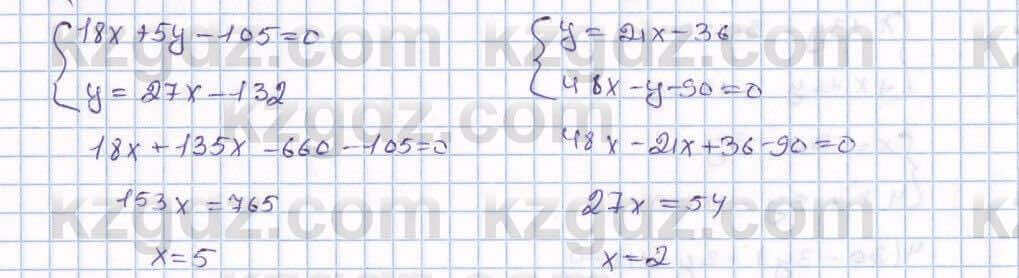 18x+5y-105=0
y=27x-132
18x+135x-660-105=0
153x=765
x=5
y=21x-36
48x-y-90=0
48x-21x+36-90=0
27x=54
x=2
kzgdz.com
kzgdz.com
kzgdz.com
kzgdz.com
kzgdz.com